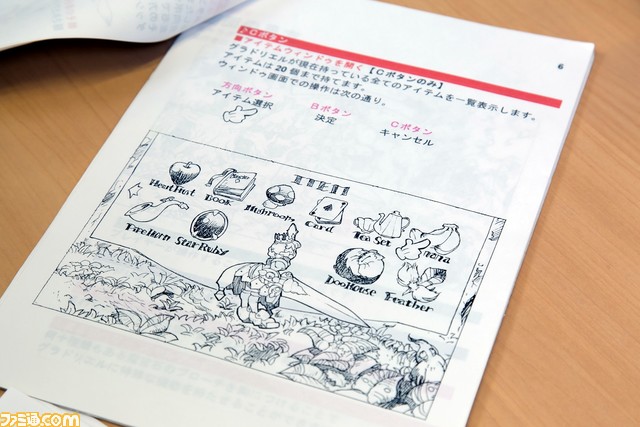 ♪Cボタン
アイテムウィンドウを開く【Cボタンのみ】
グラドリエルが現在持っている全てのアイテムを一覧表示します。
アイテムは20個まで持てます。
ウィンドウ画面での操作は次の通り。
方向ボタン Bボタン Cボタン
アイテム選択 決定 キャンセル
6
ITEM
HeartFruit Book Mushroom Card Tea Set nana
FireHorn StarRuby Feather
ファミ通.com